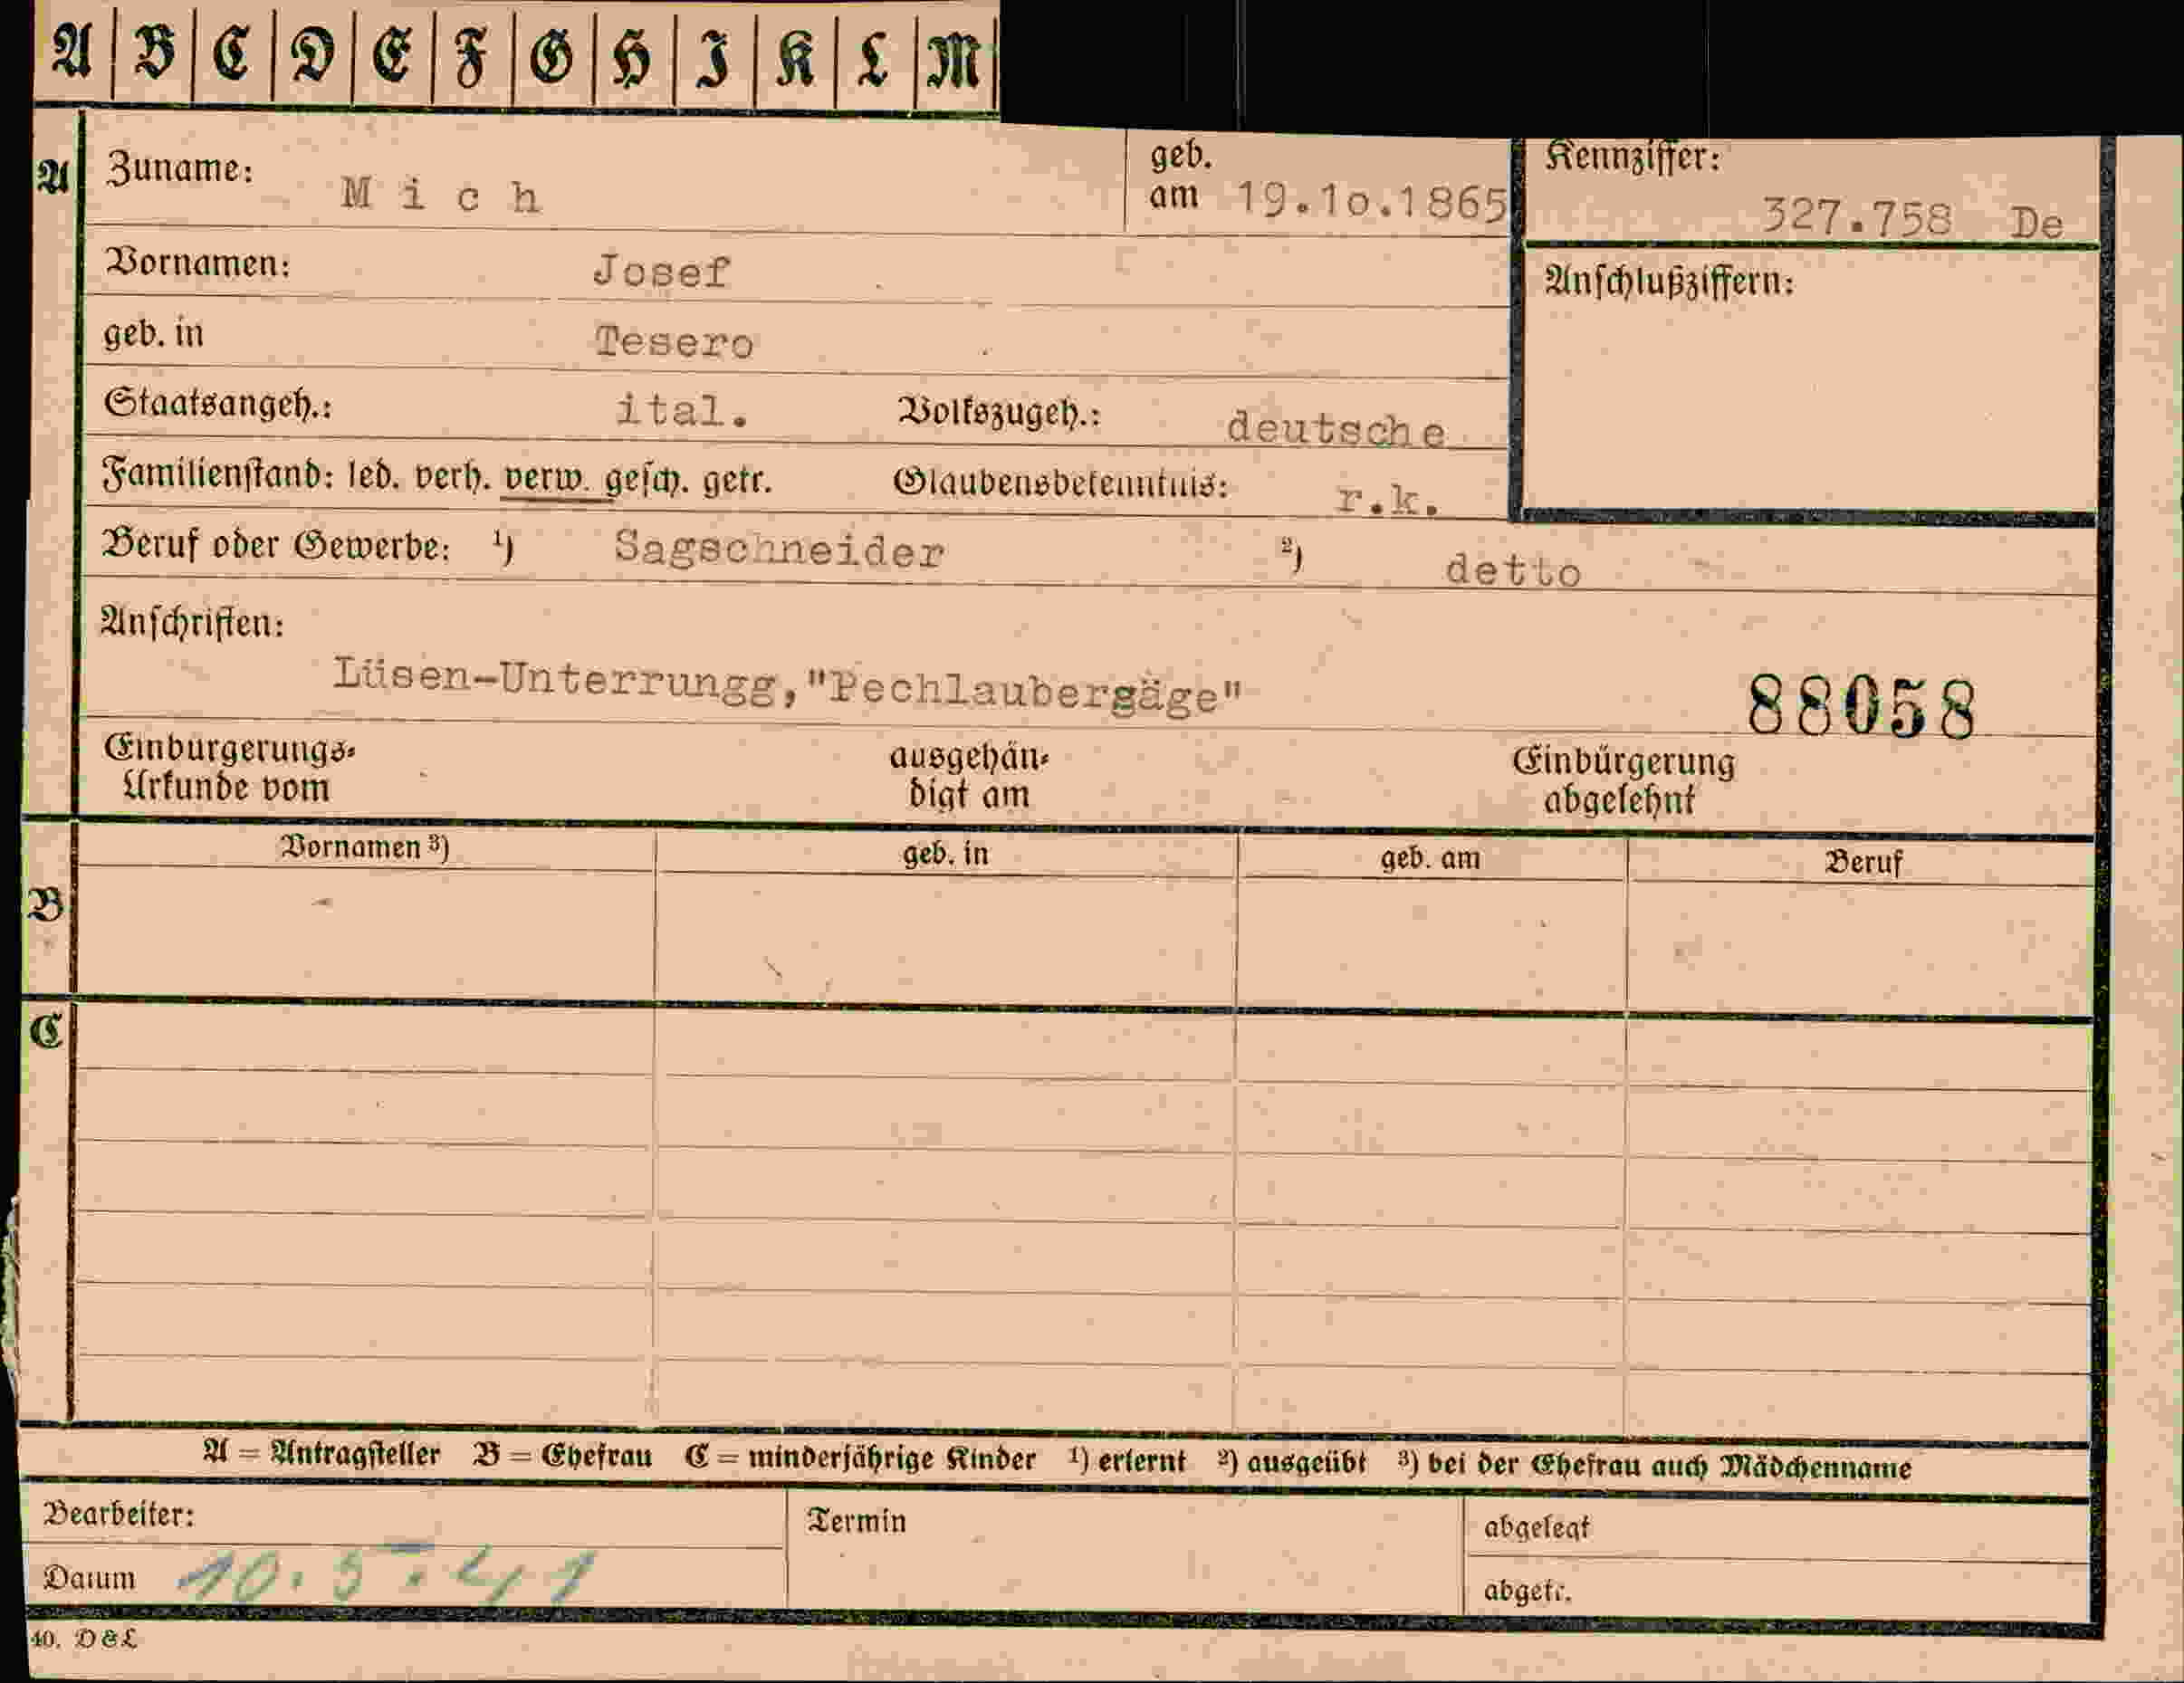 A B C D E F G H I K L M
A
Zuname: Mich geb. am 19.1o.1865
Kennziffer: 327.758 De
Vornamen: Josef
Anschlußziffern:
geb. in Tesero
Staatsangeh.: ital. Volkszugeh.: deutsche
Familienstand: led. verh. verw. gesch. getr. Glaubensbekenntnis: r.k.
Beruf oder Gewerbe: 1) Sagschneider 2) detto
Anschriften:
Lüsen-Unterrungg,"Pechlaubergäge"
88058
Einbürgerungs-
Urkunde vom
ausgehän-
digt am
Einbürgerung
abgelehnt
Vornamen 3) geb. in geb. am Beruf
B
C
A = Antragsteller B = Ehefrau C = minderjährige Kinder 1) erlernt 2) ausgeübt 3) bei der Ehefrau auch Mädchenname
Bearbeiter: Termin abgelegt
Datum 10.5.41 abgetr.
40. D&L